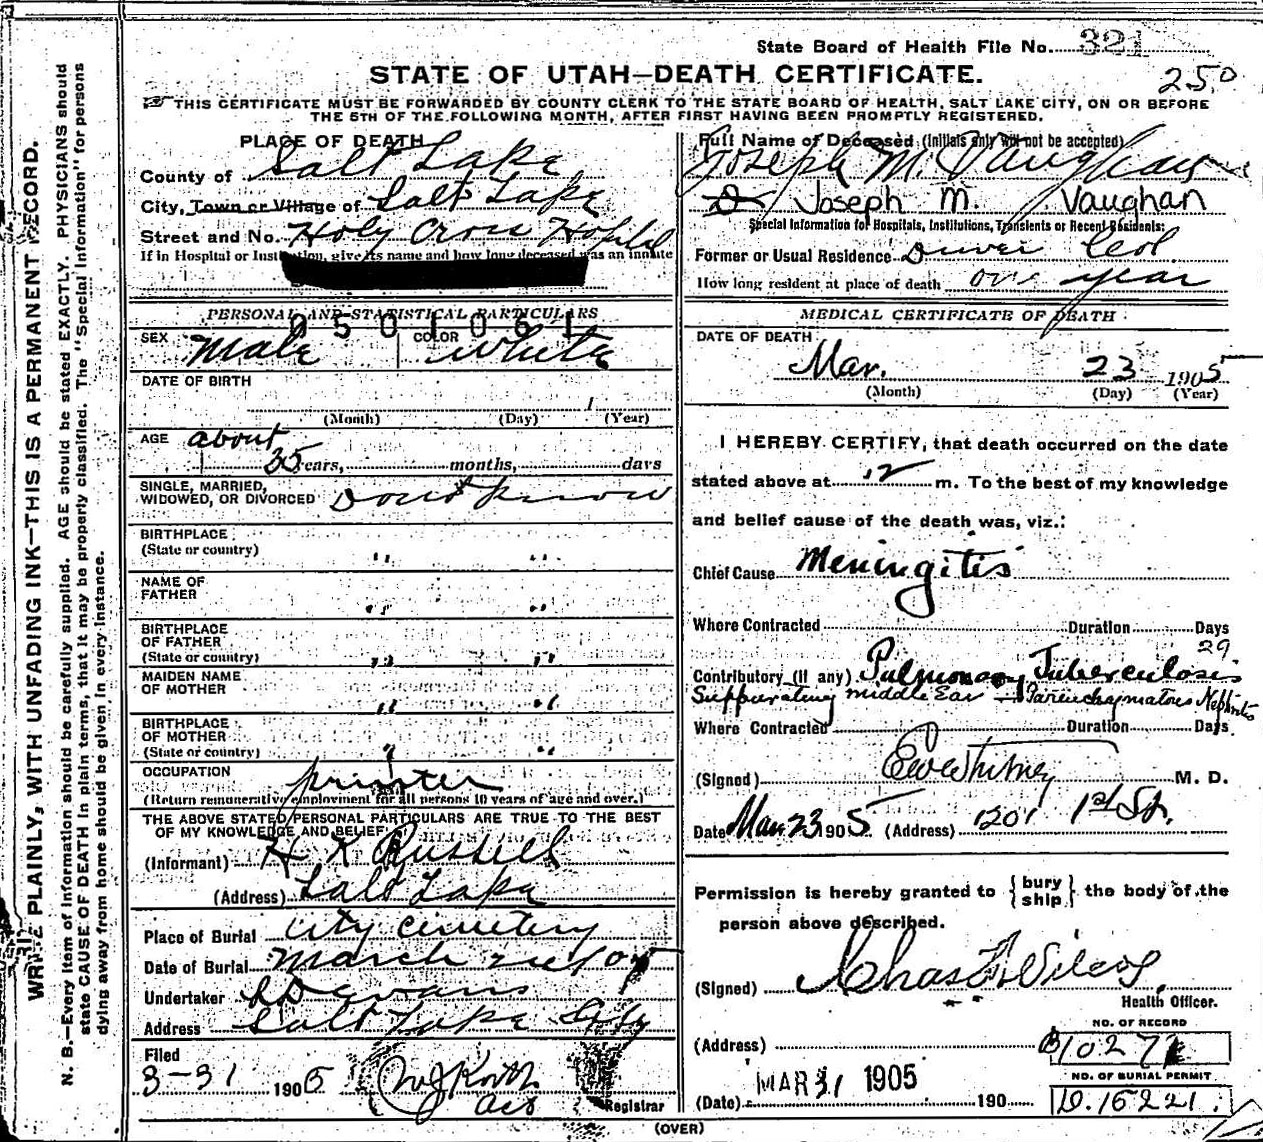 State Board of Health File No. 321
STATE OF UTAH—DEATH CERTIFICATE.
250
THIS CERTIFICATE MUST BE FORWARDED BY COUNTY CLERK TO THE STATE BOARD OF HEALTH, SALT LAKE CITY, ON OR BEFORE
THE 5TH OF THE FOLLOWING MONTH, AFTER FIRST HAVING BEEN PROMPTLY REGISTERED.
PLACE OF DEATH
County of Salt Lake
City, Town or Village of Salt Lake
Street and No. Holy Cross Hospital
If in Hospital or Institution, give its name and how long deceased was an inmate
PERSONAL AND STATISTICAL PARTICULARS
0501061
SEX Male COLOR White
DATE OF BIRTH
1
(Month) (Day) (Year)
AGE about
35 years, months, days
SINGLE, MARRIED,
WIDOWED, OR DIVORCED Dont know
BIRTHPLACE
(State or country) " "
NAME OF
FATHER " "
BIRTHPLACE
OF FATHER
(State or country) " "
MAIDEN NAME
OF MOTHER " "
BIRTHPLACE
OF MOTHER
(State or country) " "
OCCUPATION printer
(Return remunerative employment for all persons 10 years of age and over.)
THE ABOVE STATED PERSONAL PARTICULARS ARE TRUE TO THE BEST
OF MY KNOWLEDGE AND BELIEF
(Informant) H K Russell
(Address) Salt Lake
Place of Burial City Cemetery
Date of Burial March
Undertaker Evans
Address Salt Lake City
Filed
3-31 1905
Registrar
Full Name of Deceased (Initials only will not be accepted)
Joseph M. Vaughan
Joseph M. Vaughan
Special Information for Hospitals, Institutions, Transients or Recent Residents:
Former or Usual Residence Denver Col
How long resident at place of death one year
MEDICAL CERTIFICATE OF DEATH
DATE OF DEATH
Mar. 23 1905
(Month) (Day) (Year)
I HEREBY CERTIFY, that death occurred on the date
stated above at 12 m. To the best of my knowledge
and belief cause of the death was, viz.:
Chief Cause Meningitis
Where Contracted Duration Days
29
Contributory (If any) Pulmonary Tuberculosis
Suppurating middle Ear Parenchymatous Nephritis
Where Contracted Duration Days
(Signed) Whitney M. D.
Date Mar 23 1905 (Address) 1201 1st St.
Permission is hereby granted to {bury
ship} the body of the
person above described.
(Signed) Chas F Wilcox
Health Officer.
NO. OF RECORD
(Address) B10277
NO. OF BURIAL PERMIT
MAR 31 1905
(Date) 190 D.15221.
(OVER)
WRITE PLAINLY, WITH UNFADING INK—THIS IS A PERMANENT RECORD.
N. B.—Every item of information should be carefully supplied. AGE should be stated EXACTLY. PHYSICIANS should
state CAUSE OF DEATH in plain terms, that it may be properly classified. The "Special Information" for persons
dying away from home should be given in every instance.